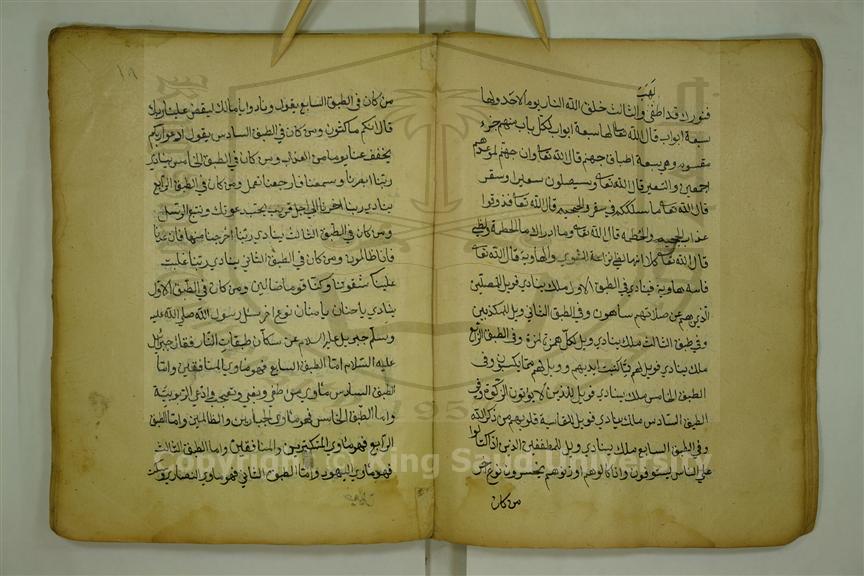 لهبك
فنورك قد اطفى والثالث خلق الله النار يوم الاحد ولها
سبعة ابواب قال الله تعا لها سبعة ابواب لكل باب منهم جزء
مقسوم وهي سبعة اطباق جهنم قال الله تعا وان جهنم لموعدهم
اجمعين والسعير قال الله تعا وسيصلون سعيرا وسقر
قال الله تعا ما سلككم في سقر والجحيم قال الله تعا فذوقوا
عذاب الجحيم والحطمة قال الله تعا وما ادراك ما الحطمة ولظى
قال الله تعا كلا انها لظى نزاعة للشوى والهاوية قال الله تعا
فامه هاوية فينادي في الطبق الاول ملك ينادي فويل للمصلين
الذين هم عن صلاتهم ساهون وفي الطبق الثاني ويل للمكذبين
وفي طبق الثالث ملك ينادي ويل لكل همزة لمزة وفي الطبق الرابع
ملك ينادي فويل لهم مما كتبت ايديهم وويل لهم مما يكسبون وفي
الطبق الخامس ملك ينادي فويل للذين لا يؤتون الزكوة وفي
الطبق السادس ملك ينادي فويل للقاسية قلوبهم من ذكر الله
وفي الطبق السابع ملك ينادي ويل للمطففين الذين اذا كتالوا
على الناس يستوفون واذا كالوهم او زنوهم يخسرون نوع اخر
من كان
١٨
من كان في الطبق السابع يقول ونادوا يا مالك ليقض علينا ربك
قال انكم ماكثون ومن كان في الطبق السادس يقول ادعوا ربكم
يخفف عنا يوما من العذاب ومن كان في الطبق الخامس ينادي
ربنا ابصرنا وسمعنا فارجعنا نعمل ومن كان في الطبق الرابع
ينادي ربنا اخرنا الى اجل قريب نجب دعوتك ونتبع الرسل
ومن كان في الطبق الثالث ينادي ربنا اخرجنا منها فان عدنا
فانا ظالمون ومن كان في الطبق الثاني ينادي ربنا غلبت
علينا شقوتنا وكنا قوما ضالين ومن كان في الطبق الاول
ينادي يا حنان يا منان نوع اخر سئل رسول الله صلى الله عليه
وسلم جبريل عليه السلام عن سكان طبقات النار فقال جبريل
عليه السلام اما الطبق السابع فهو ماوى المنافقين واما
الطبق السادس ماوى من طغى وبغى وادعى الربوبية
واما الطبق الخامس فهو ماوى الجبارين والظالمين واما الطبق
الرابع فهو ماوى المتكبرين والمنافقين واما الطبق الثالث
فهو ماوى اليهود واما الطبق الثاني فهو ماوى النصارى
Copyright © King Saud University
195